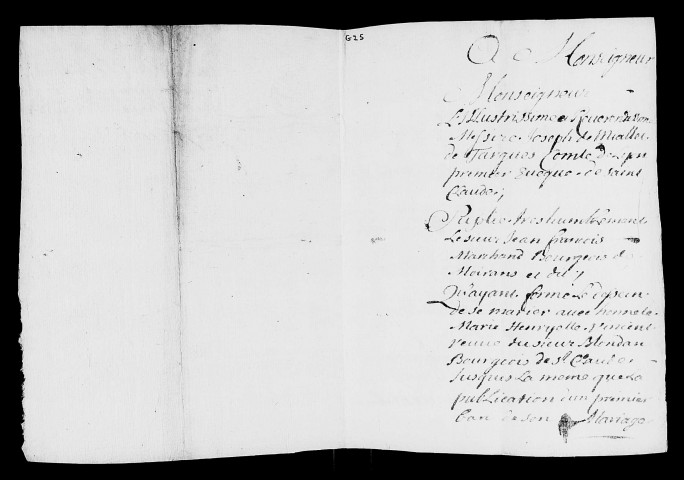 G25
A Monseigneur
Monseigneur
L'Illustrissime et Reverendissime
Messire Joseph de Meallet
de Fargues Comte de Lyon
premier Eveque de Saint
Claude,
Suplie tres humblement
Le sieur Jean francois
Marchand Bourgeois de
Moirans et dit
Qu'ayant formé Le dessein
de se marier avec honnete
Marie Henryette Vincent
veuve du sieur Blondan
Bourgeois de St. Claude
Jusques La meme que la
publication d'un premier
ban de son Mariage